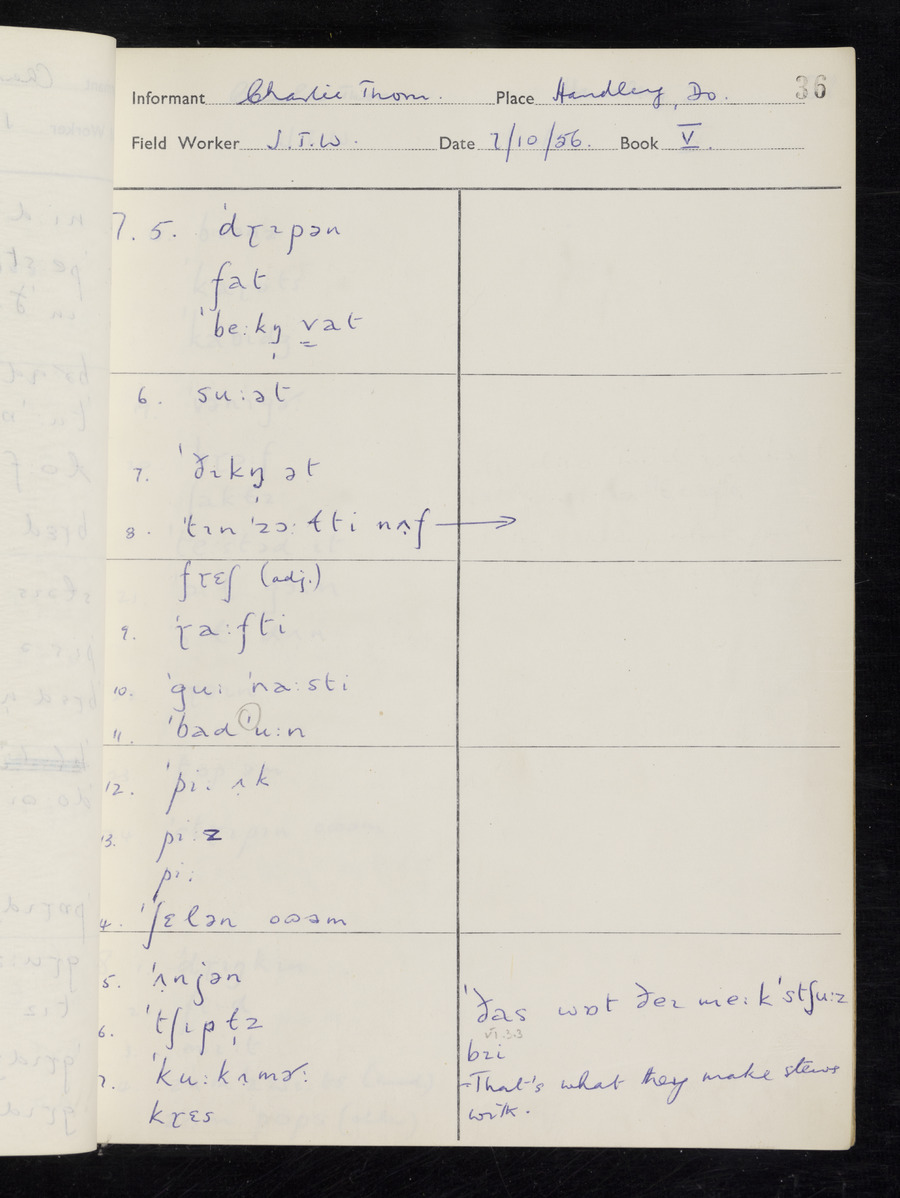 Informant Charlie Thom. Place Handley, Do. 36
Field Worker J.T.W. Date 7/10/56. Book V.
7. 5. ˈdɽɪpən
fat
ˈbeːkŋ̩ vat
6. suːət
7. ˈðɪkŋ̩ ət
8. ˈtɪn ˈzɔːɫti nʌf →
fɽɛʃ (adj.)
9. ˈɽaːfti
10. ˈguː ˈnaːsti
11. ˈbad ˈuːn
12. ˈpiːʌk
13. piːz
piː
4. ˈʃɛlən əm
5. ˈʌnjən
6. ˈtʃɪpt̩z
7. ˈkuːkʌmɚː
kɽɛs
ˈðas wɒt ðeɪ meːk ˈstʃuːz
VI.3.3
bɪi
-That's what they make stews
with.